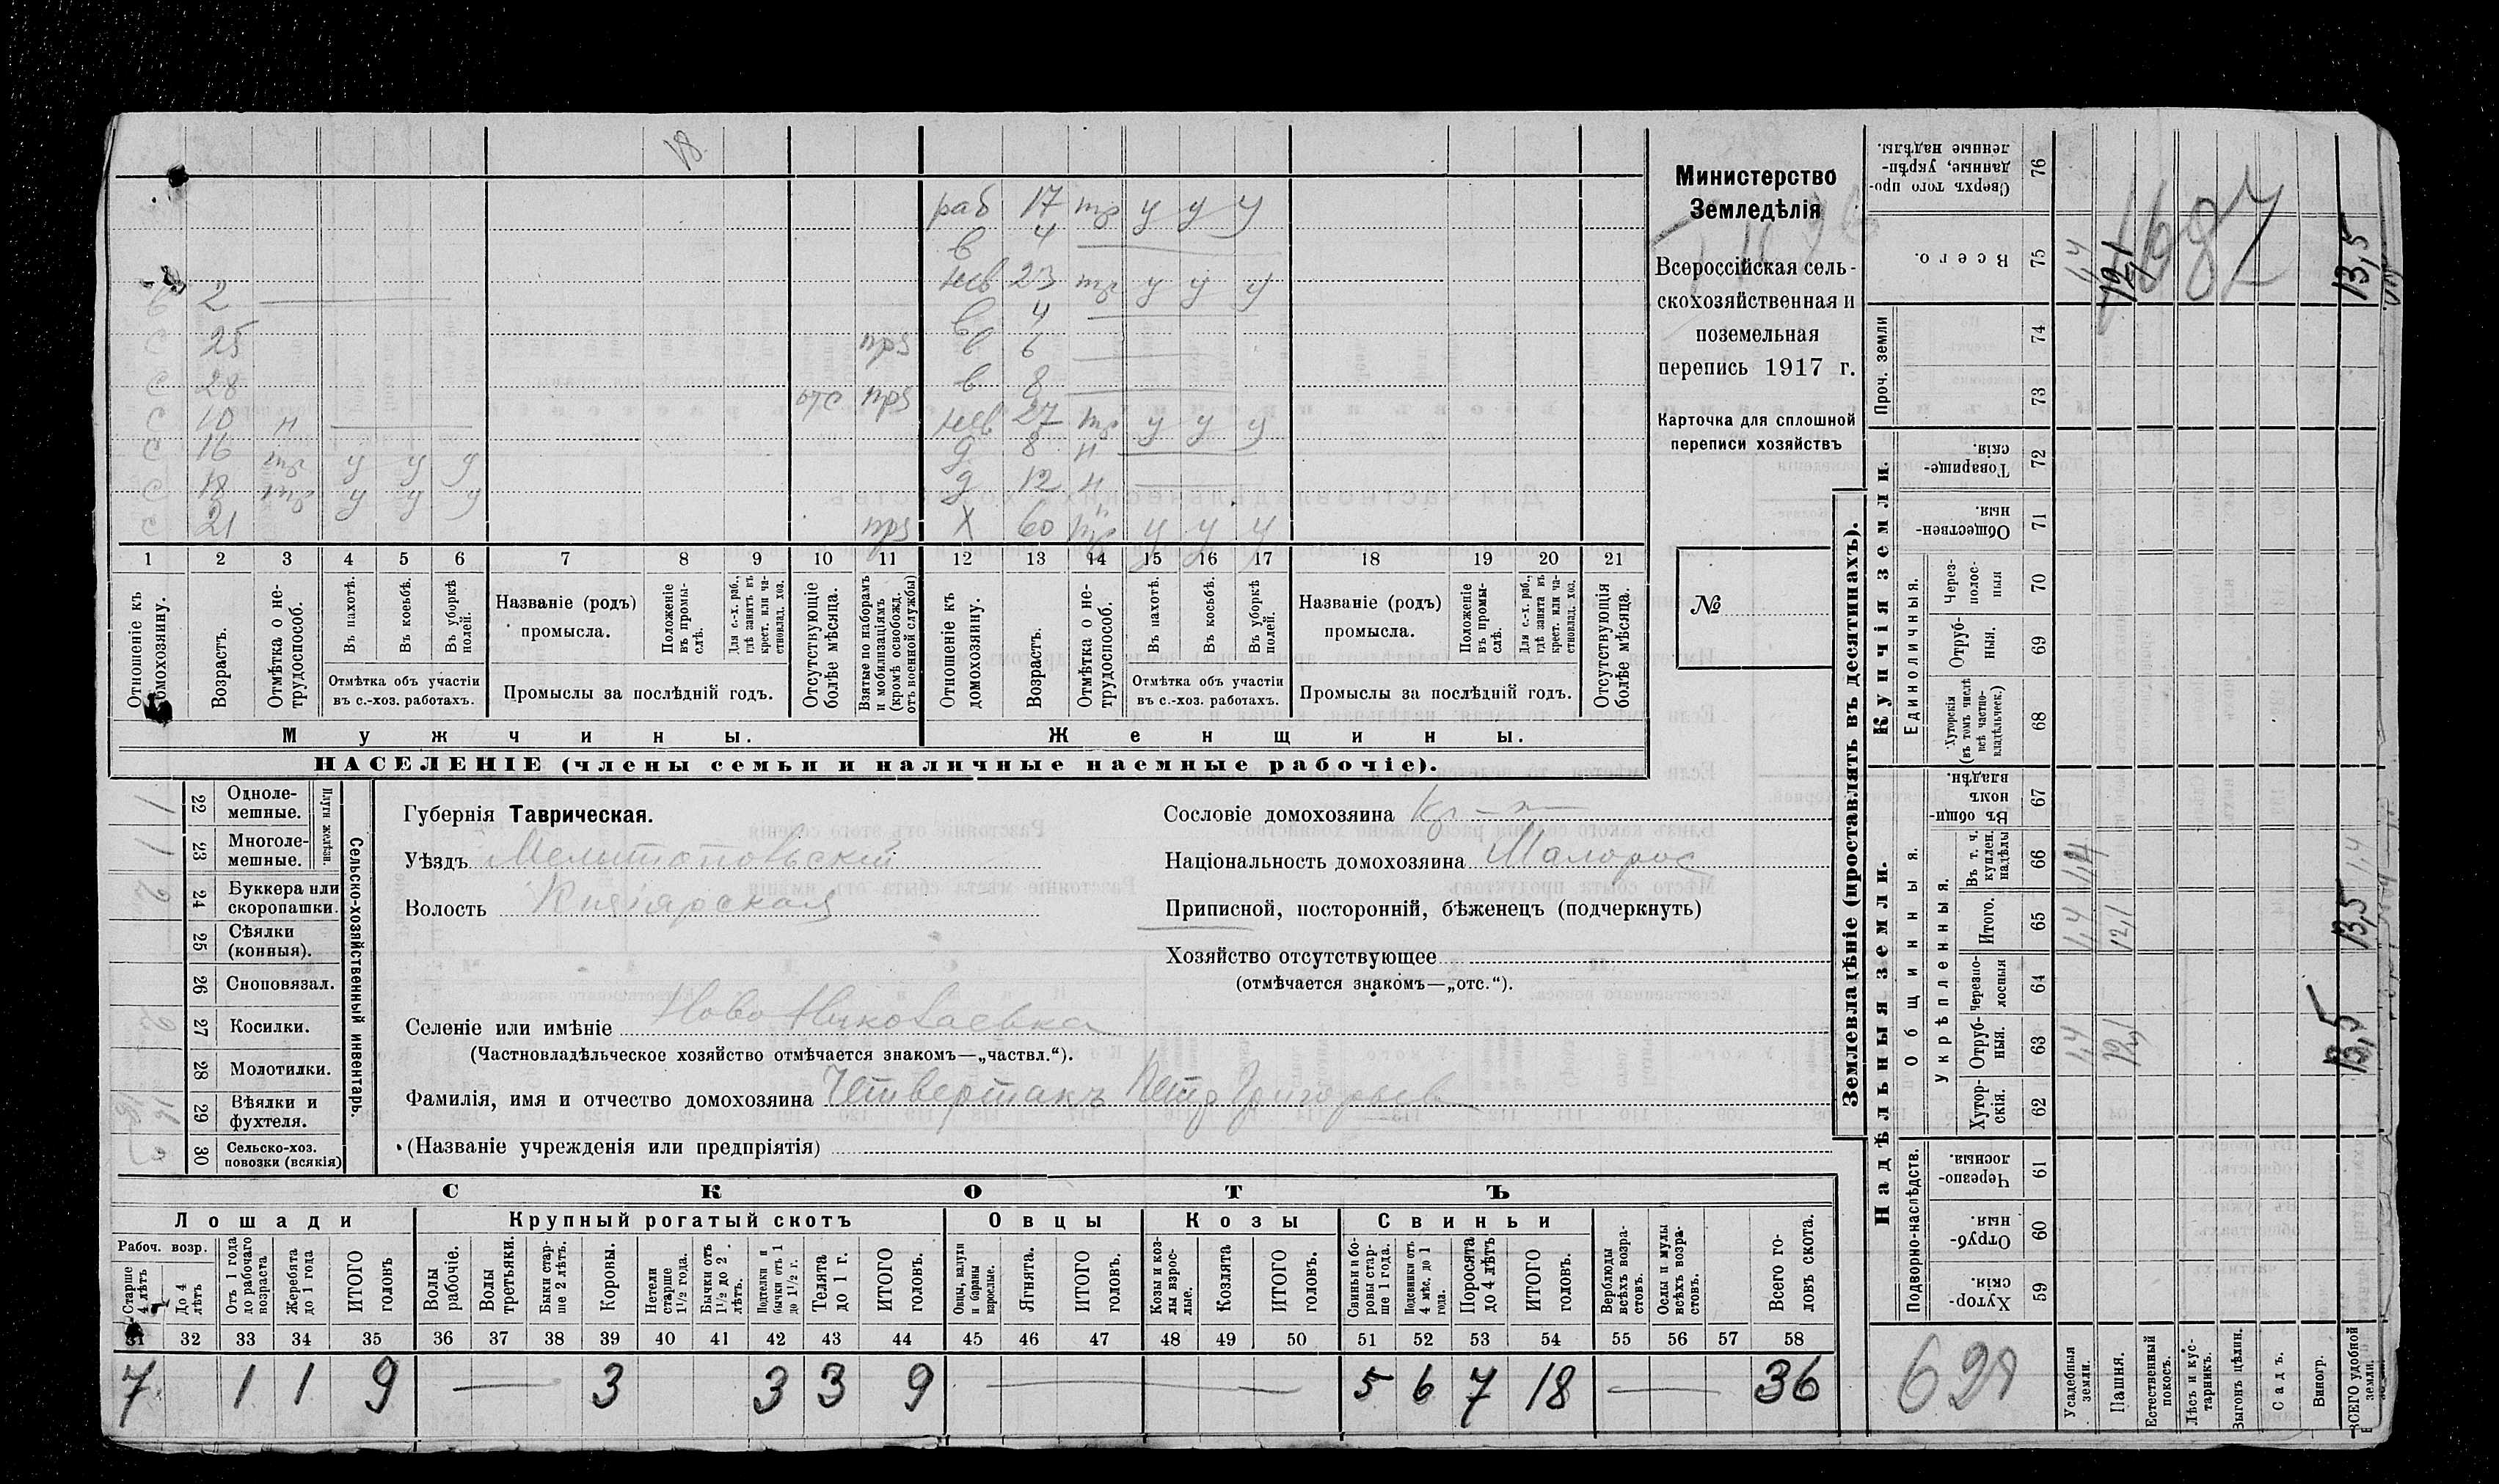 18
раб 17 тр у у у
в 4
нев 23 тр у у у
в 2
в 4
с 25 прз в 6
с 28 отс прз в 8
с 10 н нев 27 тр у у у
с 16 у у у д 8 н
с 18 у у у д 12 н
с 21 прз Х 60 тр у у у
1 2 3 4 5 6 7 8 9 10 11 12 13 14 15 16 17 18 19 20 21
Отношеніе къ домохозяину.
Возрастъ.
Отмѣтка о нетрудоспособ.
Въ пахотѣ.
Въ косьбѣ.
Въ уборкѣ полей.
Отмѣтка объ участіи
въ с.-хоз. работахъ.
Названіе (родъ)
промысла.
Положеніе въ промыслѣ.
Для с.-х. раб., гдѣ занятъ въ крест. или частновлад. хоз.
Промыслы за послѣдній годъ.
Отсутствующіе болѣе мѣсяца.
Взятые по наборамъ и мобилизаціямъ (кромѣ освобожд. отъ военной службы)
Отношеніе къ домохозяину.
Возрастъ.
Отмѣтка о нетрудоспособ.
Въ пахотѣ.
Въ косьбѣ.
Въ уборкѣ полей.
Отмѣтка объ участіи
въ с.-хоз. работахъ.
Названіе (родъ)
промысла.
Положеніе въ промыслѣ.
Для с.-х. раб., гдѣ занята въ крест. или частновлад. хоз.
Промыслы за послѣдній годъ.
Отсутствующія болѣе мѣсяца.
Мужчины.
Женщины.
НАСЕЛЕНІЕ (члены семьи и наличные наемные рабочіе).
Министерство
Земледѣлія
Всероссійская сель-
скохозяйственная и
поземельная
перепись 1917 г.
Карточка для сплошной
переписи хозяйствъ
№
22 Одноле-
мешные.
23 Многоле-
мешные.
Плуги желѣзн.
24 Буккера или
скоропашки.
25 Сѣялки
(конныя).
26 Сноповязал.
27 Косилки.
28 Молотилки.
29 Вѣялки и
фухтеля.
30 Сельско-хоз.
повозки (всякія)
Сельско-хозяйственный инвентарь.
1
1
2
Губернія Таврическая.
Уѣздъ Мелитопольскій
Волость
Селеніе или имѣніе Ново Николаевка
(Частновладѣльческое хозяйство отмѣчается знакомъ—„частвл.“).
Фамилія, имя и отчество домохозяина Четвертакъ Петр Григорьев
(Названіе учрежденія или предпріятія)
Сословіе домохозяина кр-н
Національность домохозяина Малорос
Приписной, посторонній, бѣженецъ (подчеркнуть)
Хозяйство отсутствующее
(отмѣчается знакомъ—„отс.“).
СКОТЪ
Лошади
Крупный рогатый скотъ
Овцы
Козы
Свиньи
Рабоч. возр.
Старше 4 лѣтъ
До 4 лѣтъ
Отъ 1 года до рабочаго возраста
Жеребята до 1 года
ИТОГО головъ
Волы рабочіе.
Волы третьяки.
Быки старше 2 лѣтъ.
Коровы.
Нетели старше 1½ года.
Бычки отъ 1½ до 2 лѣтъ.
Подтелки и бычки отъ 1 до 1½ г.
Телята до 1 г.
ИТОГО головъ.
Овцы, валухи и бараны взрослые.
Ягнята.
ИТОГО головъ.
Козы и козлы взрослые.
Козлята
ИТОГО головъ.
Свиньи и боровы старше 1 года.
Подсвинки отъ 4 мѣс. до 1 года.
Поросята до 4 лѣтъ
ИТОГО головъ.
Верблюды всѣхъ возрастовъ.
Ослы и мулы всѣхъ возрастовъ.
Всего головъ скота.
31 32 33 34 35 36 37 38 39 40 41 42 43 44 45 46 47 48 49 50 51 52 53 54 55 56 57 58
7 1 1 9 — 3 3 3 9 — 5 6 7 18 — 36
Землевладѣніе (проставлять въ десятинахъ).
Надѣльныя земли.
Купчія земли.
Проч. земли
Общинныя.
Укрѣпленныя.
Единоличныя.
Подворно-наслѣдств.
Сверхъ того проданные, укрѣпленные надѣлы. 76
Всего. 75
74
73
Товарищескія. 72
Общественныя. 71
Черезполосныя 70
Отрубныя. 69
Хуторскія (въ томъ числѣ всѣ частновладѣльческ.) 68
Въ общинномъ владѣн. 67
Въ т. ч. куплен. надѣлы 66
Итого. 65
Черезполосныя 64
Отрубныя. 63
Хуторскія. 62
Черезполосныя. 61
Отрубныя. 60
Хуторскія. 59
Усадебныя земли.
Пашня.
Естественный покосъ.
Лѣсъ и кустарникъ.
Выгонъ цѣлин.
Садъ.
Виногр.
ВСЕГО удобной земли.
1,4
12,1
1687
13,5
1,4
12,1
13,5
1,4
12,1
13,5
629